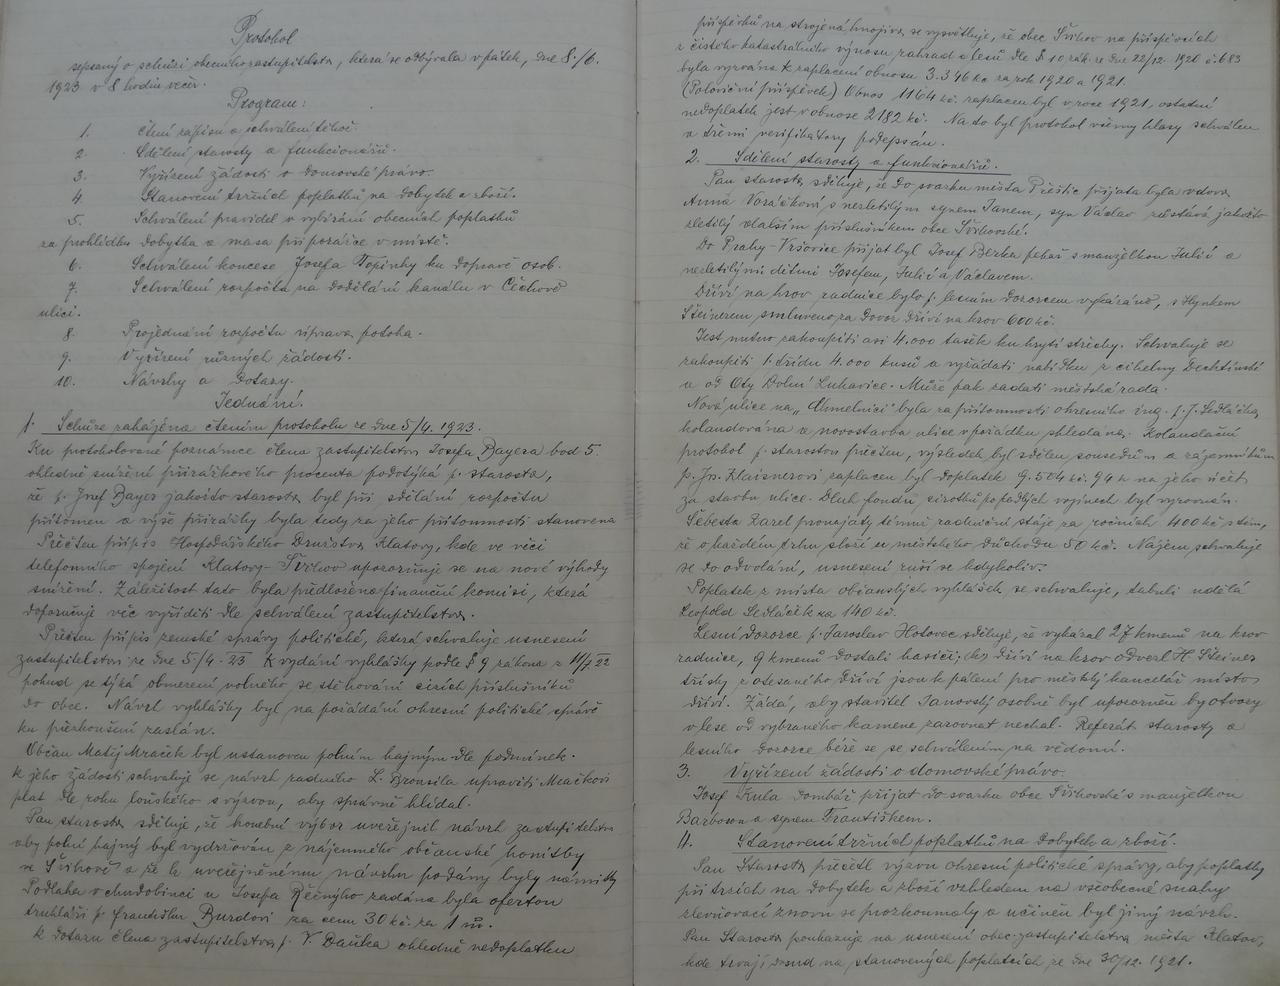 Protokol
sepsaný o schůzi obecního zastupitelstva, která se odbývala v pátek, dne 8./6.
1923 v 8 hodin večer.
Program:
1. čtení zápisu a schválení téhož.
2. Sdělení starosty a funkcionářů.
3. Vyřízení žádostí o domovské právo.
4. Stanovení tržních poplatků na dobytek a zboží.
5. Schválení pravidel o vybírání obecních poplatků
za prohlídku dobytka a masa při porážce v místě.
6. Schválení koncese Josefa Topinky ku dopravě osob.
7. Schválení rozpočtu na dodělání kanálu v Čechově
ulici.
8. Projednání rozpočtu úprava potoka.
9. Vyřízení různých žádostí.
10. Návrhy a dotazy.
Jednání.
1. Schůze zahájena čtením protokolu ze dne 5/4. 1923.
Ku protokolované poznámce člena zastupitelstva Josefa Bayera bod 5.
ohledně snížení přirážkového procenta podotýká p. starosta,
že p. Josef Bayer jakožto starosta byl při sdělání rozpočtu
přítomen a výše přirážky byla tedy za jeho přítomnosti stanovena
Přečten přípis Hospodářského Družstva Klatovy, kde ve věci
telefonního spojení Klatovy-Švihov upozorňuje se na nové výhody
snížení. Záležitost tato byla předložena finanční komisi, která
doporučuje věc vyříditi dle schválení zastupitelstva.
Přečten přípis zemské správy politické, která schvaluje usnesení
zastupitelstva ze dne 5/4. 23 K vydání vyhlášky podle § 9 zákona z 22
pokud se týká obmezení volného se stěhování cizích příslušníků
do obce. Návrh vyhlášky byl na požádání okresní politické správě
ku přezkoušení zaslán.
Občan Matěj Mraček byl ustanoven polním hajným dle podmínek.
k jeho žádosti schvaluje se návrh radního L. Brousila upraviti Mračkovi
plat dle roku loňského s výzvou, aby správně hlídal.
Pan starosta sděluje, že honební výbor uveřejnil návrh zastupitelstva
aby polní hajný byl vydržován z nájemného občanské honitby
ve Švihově a že k uveřejněnému návrhu podány byly námitky
Podlaha v chudobinci u Josefa Řečnýho zadána byla ofertou
truhláři p. Františku Burdovi za cenu 30 kč. za 1 m².
k dotazu člena zastupitelstva p. V. Dauka ohledně nedoplatku
příspěvků na strojená hnojiva se vysvětluje, že obec Švihov na příspěvcích
z čistého katastrálního výnosu zahrad a lesů dle § 10 zák. ze dne 22/12. 1920 č. 683
byla vyzvána k zaplacení obnosu 3.346 kč za rok 1920 a 1921.
(Poloviční příspěvek) Obnos 1164 kč. zaplacen byl v roce 1921, ostatní
nedoplatek jest v obnose 2182 kč. Na to byl protokol všemi hlasy schválen
a třemi verifikátory podepsán.
2. Sdělení starosty a funkcionářů.
Pan starosta sděluje, že do svazku města Přeštic přijata byla vdova
Anna Voráčková s nezletilým synem Janem, syn Václav zůstává jakožto
zletilý dalším příslušníkem obce Švihovské.
Do Prahy-Vršovice přijat byl Josef Berka pekař s manželkou Julií a
nezletilými dětmi Josefem, Julií a Václavem.
Dříví na krov radnice bylo p. lesním dozorcem vykázáno, s Hynkem
Šteinerem smluveno za dovoz dříví na krov 600 kč.
Jest nutno zakoupiti asi 4.000 tašek ku krytí střechy. Schvaluje se
zakoupiti I. třídu 4.000 kusů a vyžádati nabídku z cihelny Dechtínské
a od Oty Dolní Lukavice. Může pak zadati městská rada.
Nová ulice na „Chmelnici" byla za přítomnosti okresního ing. p. J. Sedláčka
kolaudována a novostavba ulice v pořádku shledána. Kolaudační
protokol p. starostou přečten, výsledek byl sdělen sousedům a zájemníkům
p. Jos. Klaisnerovi zaplacen byl doplatek 9.504 kč. 94 h na jeho účet
za stavbu ulice. Dluh fondu sirotků po padlých vojínech byl vyrovnán.
Šebesta Karel pronajaty témuž radniční stáje za ročních 400 kč s tím,
že o každém trhu složí u městského důchodu 50 kč. Nájem schvaluje
se do odvolání, usnesení ruší se kdykoliv.
Poplatek z místa občanských vyhlášek se schvaluje, tabuli udělá
Leopold Sedláček za 140 kč.
Lesní dozorce p. Jaroslav Hotovec sděluje, že vykázal 27 kmenů na krov
radnice, 9 kmenů dostali hasiči, dříví na krov odvezl H. Šteiner
třísky z otesaného dříví jsou k pálení pro městský kancelář místo
dříví. Žádá, aby stavitel Janovský osobně byl upozorněn by otvory
v lese od vybraného kamene zarovnat nechal. Referát starosty a
lesního dozorce béře se se schválením na vědomí.
3. Vyřízení žádostí o domovské právo.
Josef Kula přijat do svazku obce Švihovské s manželkou
Barborou a synem Františkem.
4. Stanovení tržních poplatků na dobytek a zboží.
Pan Starosta přečetl výzvu okresní politické správy, aby poplatky
při trzích na dobytek a zboží vzhledem na všeobecné snahy
zlevňovací znovu se prozkoumaly a učiněn byl jiný návrh.
Pan Starosta poukazuje na usnesení obec. zastupitelstva města Klatov,
kde trvají dosud na stanovených poplatcích ze dne 30/12. 1921.